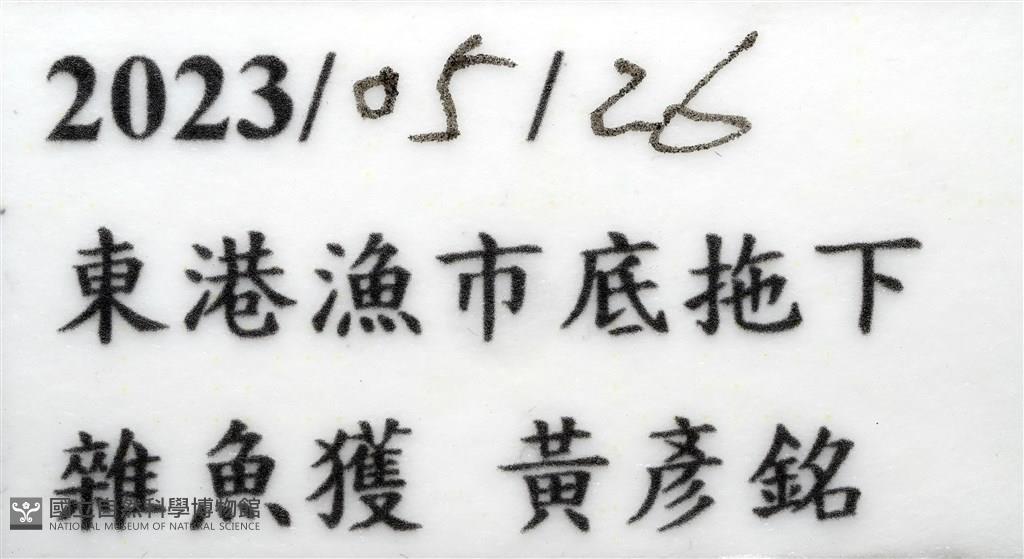 2023/05/26
東港漁市底拖下
雜魚獲 黃彥銘
國立自然科學博物館
NATIONAL MUSEUM OF NATURAL SCIENCE